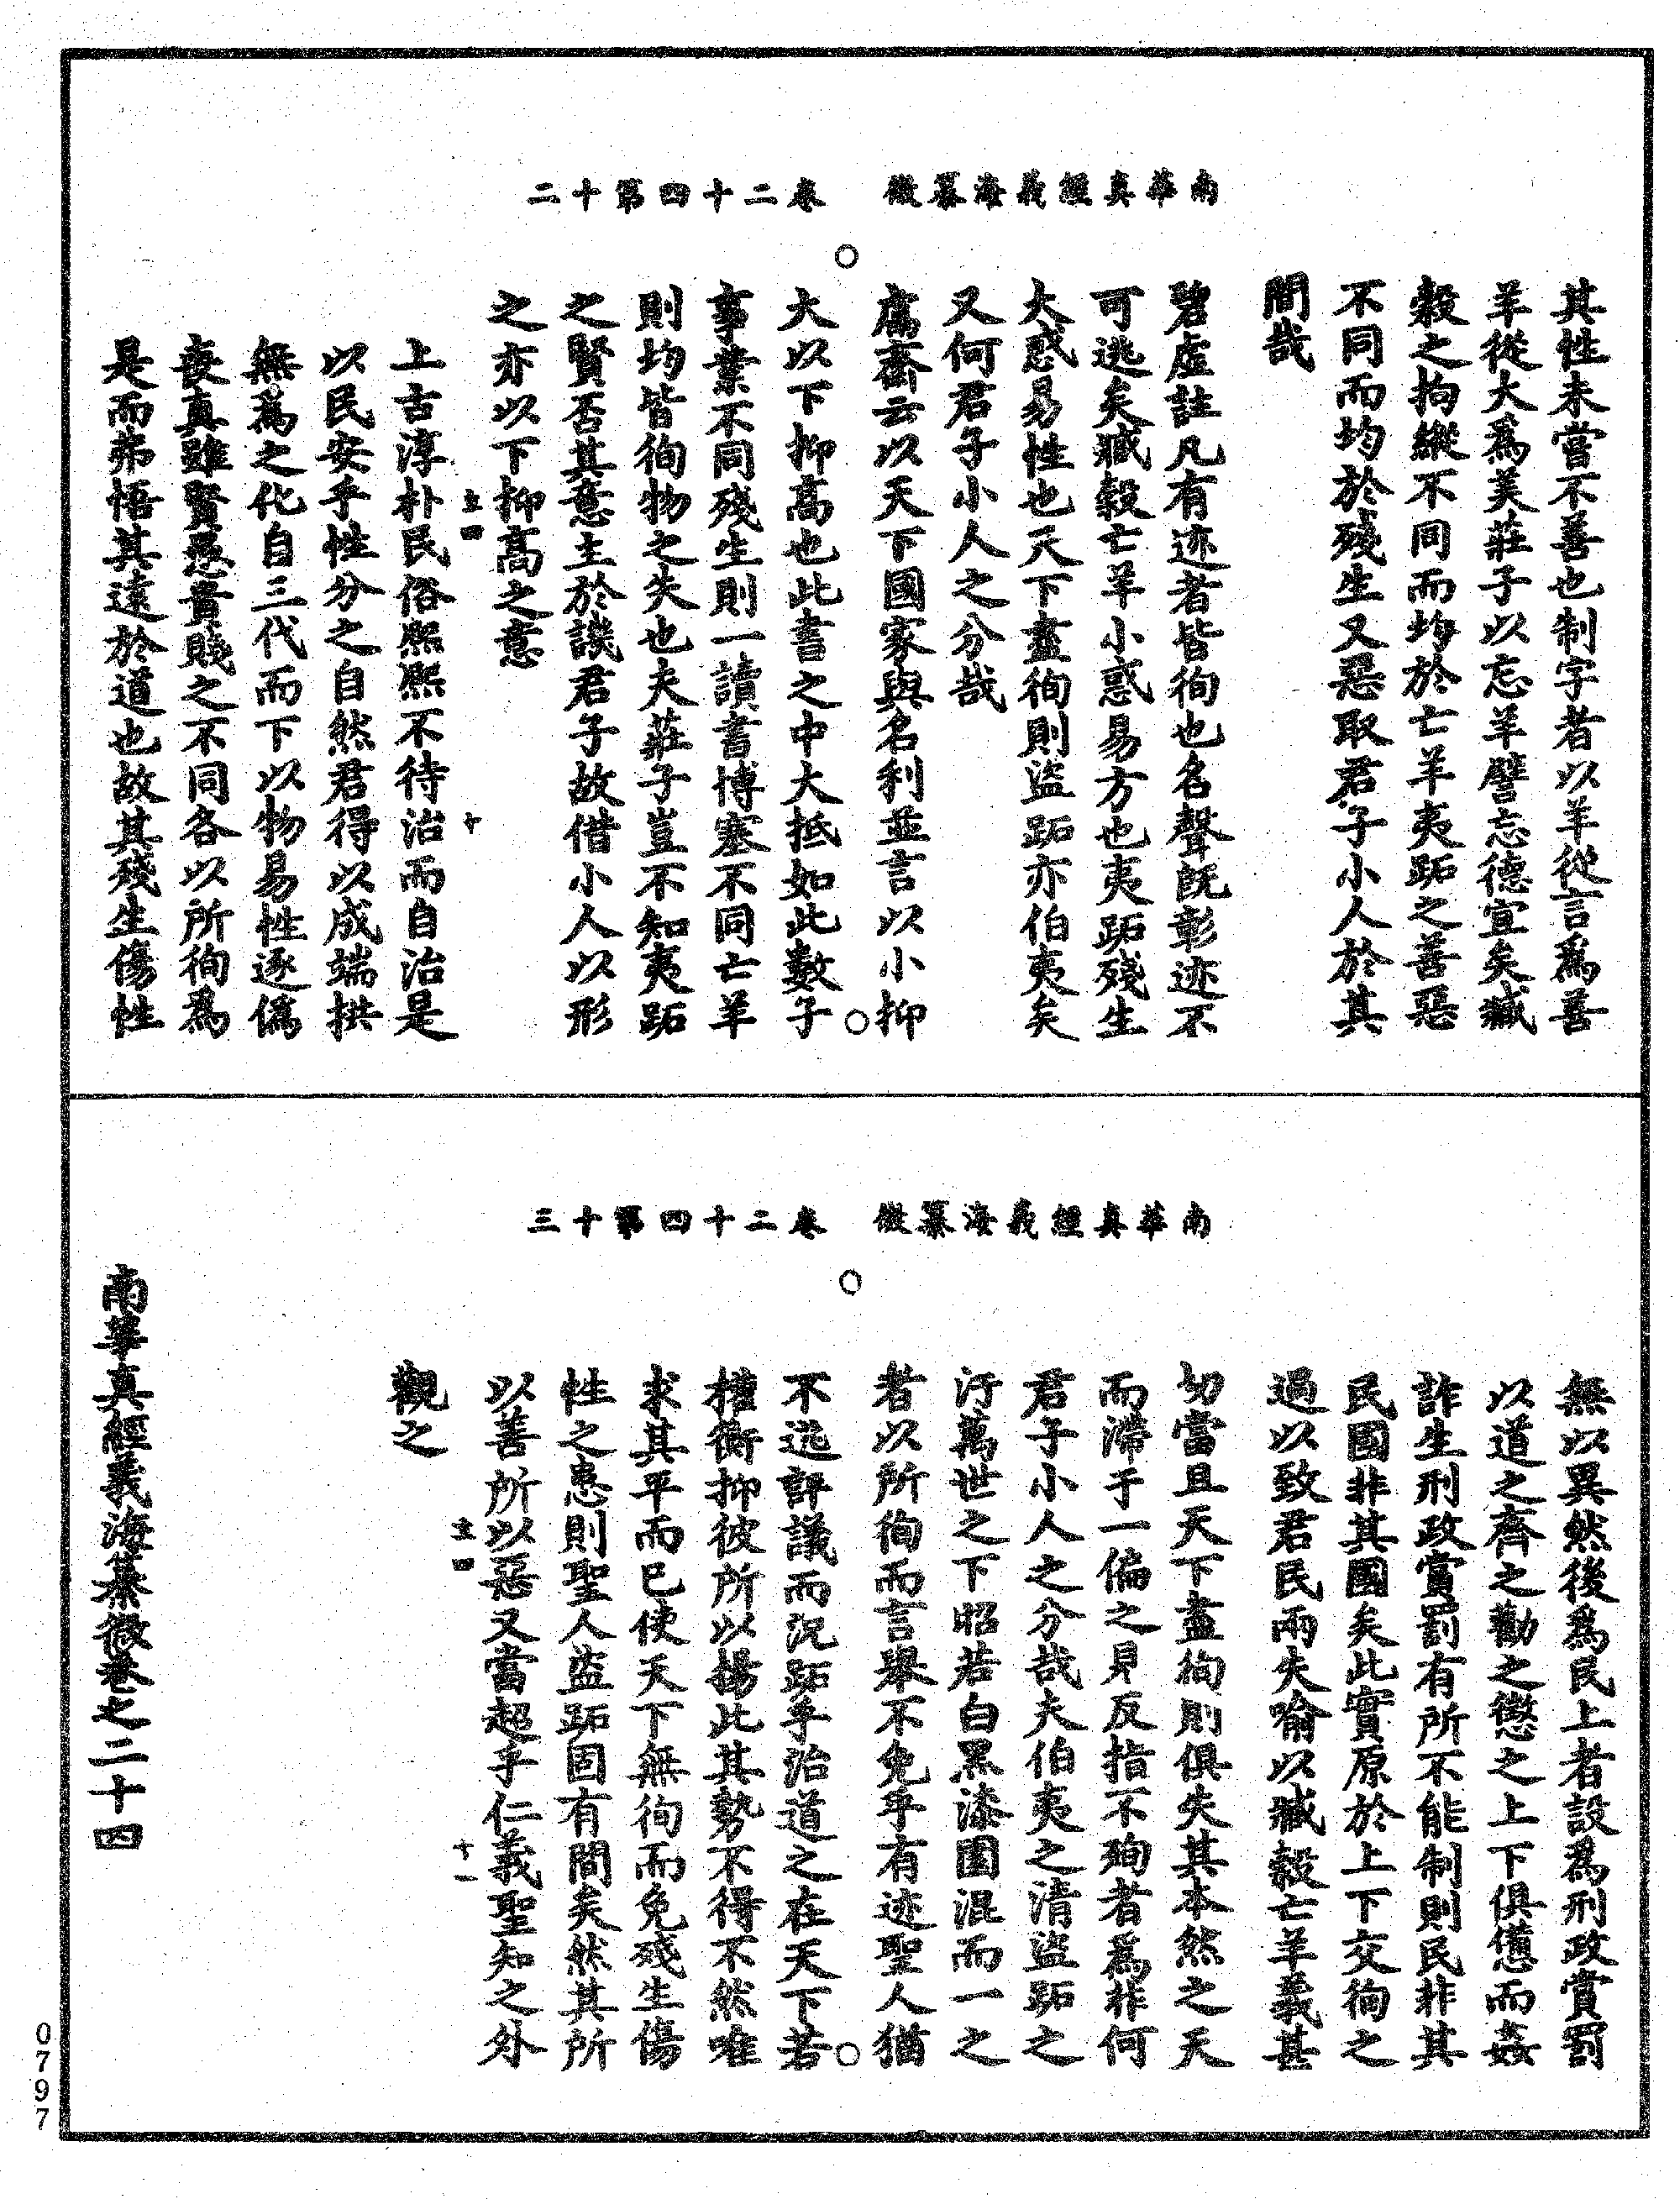 南華真經義海纂微　卷二十四第十二
其性未嘗不善也制字者以羊從言爲善
羊從大爲美莊子以忘羊譬忘德宜矣臧
穀之拘縱不同而均於亡羊夷跖之善惡
不同而均於殘生又惡取君子小人於其
間哉
碧虛註凡有迹者皆徇也名聲既彰迹不
可逃矣臧穀亡羊小惑易方也夷跖殘生
大惑易性也天下盡徇則盜跖亦伯夷矣
又何君子小人之分哉
鬳齋云以天下國家與名利並言以小抑
大以下抑高也此書之中大抵如此數子
事業不同殘生則一讀書博塞不同亡羊
則均皆徇物之失也夫莊子豈不知夷跖
之賢否其意主於譏君子故借小人以形
之亦以下抑高之意
主四
十
上古淳朴民俗熙熙不待治而自治是
以民安乎性分之自然君得以成端拱
無爲之化自三代而下以物易性逐僞
喪真雖賢愚貴賤之不同各以所徇爲
是而弗悟其遠於道也故其殘生傷性
南華真經義海纂微　卷二十四第十三
無以異然後爲民上者設爲刑政賞罰
以道之齊之勸之懲之上下俱憊而姦
詐生刑政賞罰有所不能制則民非其
民國非其國矣此實原於上下交徇之
過以致君民兩失喻以臧穀亡羊義甚
切當且天下盡徇則俱失其本然之天
而滯于一偏之見反指不殉者爲非何
君子小人之分哉夫伯夷之清盜跖之
汙萬世之下昭若白黑漆園混而一之
者以所徇而言舉不免乎有迹聖人猶
不逃評議而況跖乎治道之在天下若
權衡抑彼所以揚此其勢不得不然唯
求其平而已使天下無徇而免殘生傷
性之患則聖人盜跖固有間矣然其所
以善所以惡又當超乎仁義聖知之外
主四
十一
觀之
南華真經義海纂微卷之二十四
0797